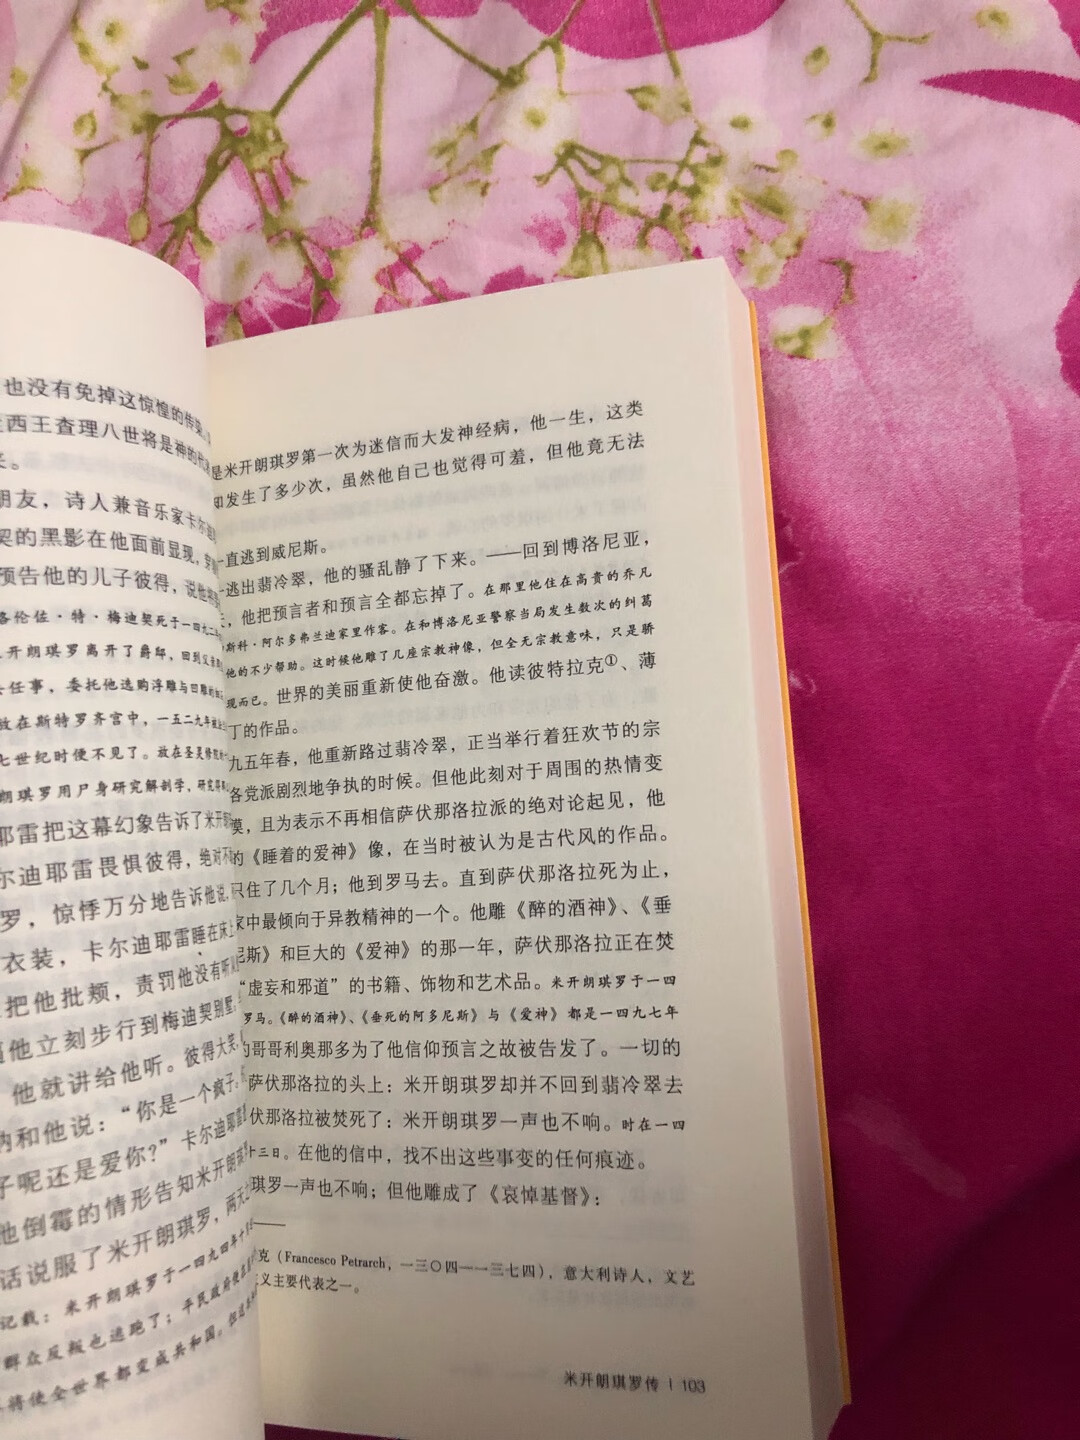 也没有免掉这惊惶的传染
西王查理八世将是神的代
来。
朋友，诗人兼音乐家卡尔迪
契的黑影在他面前显现，穿
预告他的儿子彼得，说他
洛伦佐·特·梅迪契死于一四九二年
开朗琪罗离开了爵邸，回到父
任事，委托他选购浮雕与凹雕
放在斯特罗齐宫中，一五二九年被
七世纪时便不见了。放在圣灵修院
朗琪罗用尸身研究解剖学，研究得
耶雷把这幕幻象告诉了米开朗
尔迪耶雷畏惧彼得，绝对不
罗，惊悸万分地告诉他说，
衣装，卡尔迪耶雷睡在床上
把他批颊，责罚他没有听从
他立刻步行到梅迪契别墅
他就讲给他听。彼得大笑
纳和他说：“你是一个疯子。
子呢还是爱你？”卡尔迪耶雷
他倒霉的情形告知米开朗琪
话说服了米开朗琪罗，两天
记载：米开朗琪罗于一四九四年十
群众反叛也逃跑了；平民政府便
将使全世界都变成共和国。但这
是米开朗琪罗第一次为迷信而大发神经病，他一生，这类
知发生了多少次，虽然他自己也觉得可羞，但他竟无法
一直逃到威尼斯。
逃出翡冷翠，他的骚乱静了下来。——回到博洛尼亚，
，他把预言者和预言全都忘掉了。在那里他住在高贵的乔凡
斯科·阿尔多弗兰迪家里作客。在和博洛尼亚警察当局发生数次的纠葛
他的不少帮助。这时候他雕了几座宗教神像，但全无宗教意味，只是骄
现而已。世界的美丽重新使他奋激。他读彼特拉克①、薄
丁的作品。
九五年春，他重新路过翡冷翠，正当举行着狂欢节的宗
各党派剧烈地争执的时候。但他此刻对于周围的热情变
漠，且为表示不再相信萨伏那洛拉派的绝对论起见，他
的《睡着的爱神》像，在当时被认为是古代风的作品。
只住了几个月；他到罗马去。直到萨伏那洛拉死为止，
家中最倾向于异教精神的一个。他雕《醉的酒神》、《垂
尼斯》和巨大的《爱神》的那一年，萨伏那洛拉正在焚
“虚妄和邪道”的书籍、饰物和艺术品。米开朗琪罗于一四
罗马。《醉的酒神》、《垂死的阿多尼斯》与《爱神》都是一四九七年
的哥哥利奥那多为了他信仰预言之故被告发了。一切的
萨伏那洛拉的头上：米开朗琪罗却并不回到翡冷翠去
伏那洛拉被焚死了：米开朗琪罗一声也不响。时在一四
十三日。在他的信中，找不出这些事变的任何痕迹。
琪罗一声也不响；但他雕成了《哀悼基督》：
克（Francesco Petrarch，一三〇四—一三七四），意大利诗人，文艺
义主要代表之一。
米开朗琪罗传 | 103